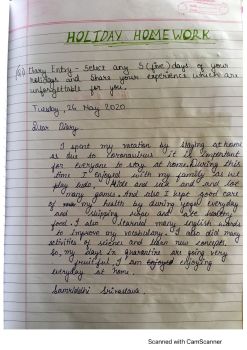 HOLIDAY HOMEWORK
Q1) Diary Entry - Select any 5 (five) days of your
holidays and share your experience which are
unforgettable for you.
Tuesday, 26 May 2020
Dear Diary
I spent my vacation by staying at home
as due to coronavirus it is important
for everyone to stay at home. During this
time I enjoyed with my family as we
play ludo, hide and seek and and lots
many games. And also I kept good care
of my health by during yoga everyday
and skipping rope and ate healthy
food. I also learned many english words
to improve my vocabulary. I also did many
activities of science and learn new concepts.
So, my days in quarantine are going very
fruitful. I am enjoying
everyday at home.
Samriddhi Srivastava
Scanned with CamScanner